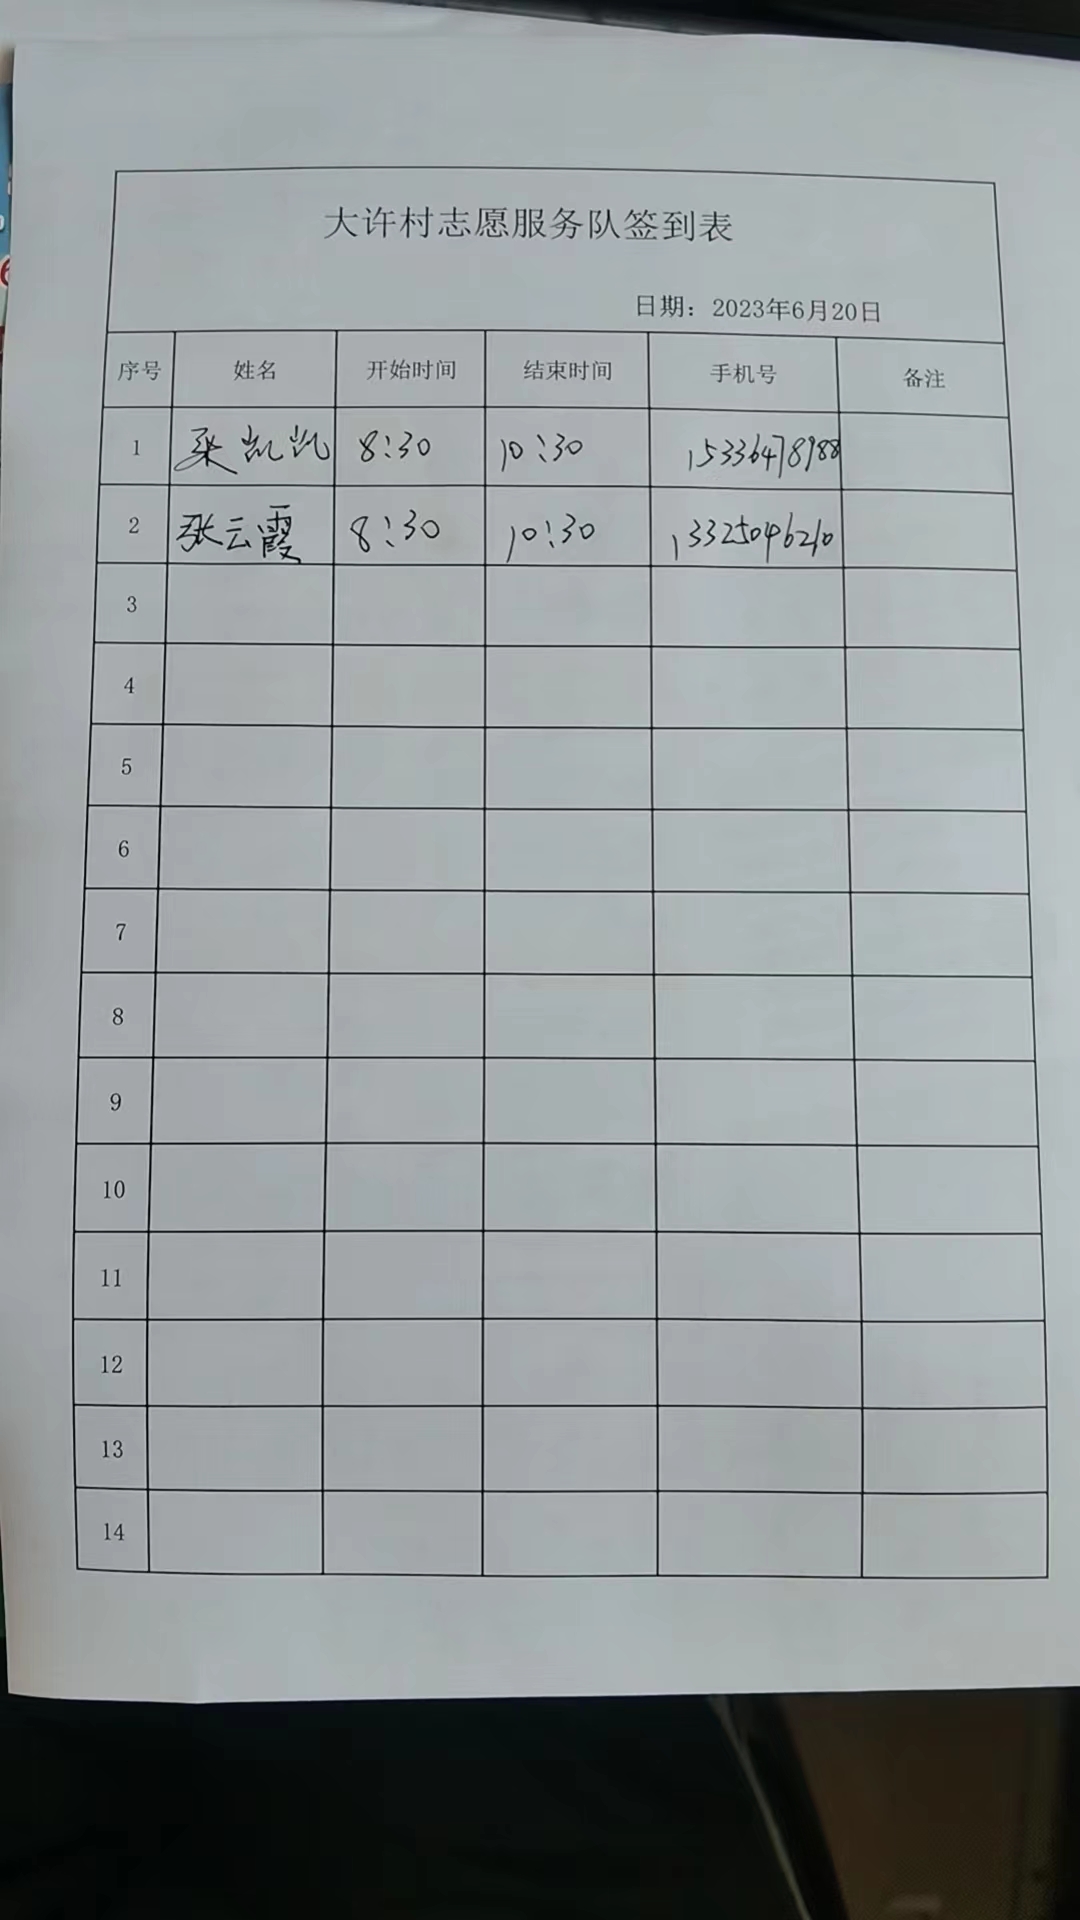 大许村志愿服务队签到表
日期：2023年6月20日
序号 姓名 开始时间 结束时间 手机号 备注
1 凯凯 8:30 10:30 15336478988
2 张云霞 8:30 10:30 13325046210
3
4
5
6
7
8
9
10
11
12
13
14